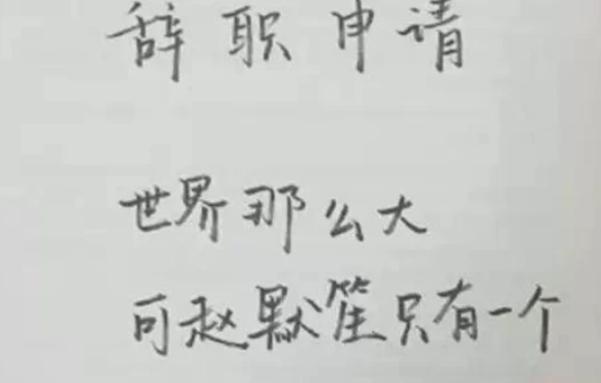 辞职申请
世界那么大
可赵默笙只有一个